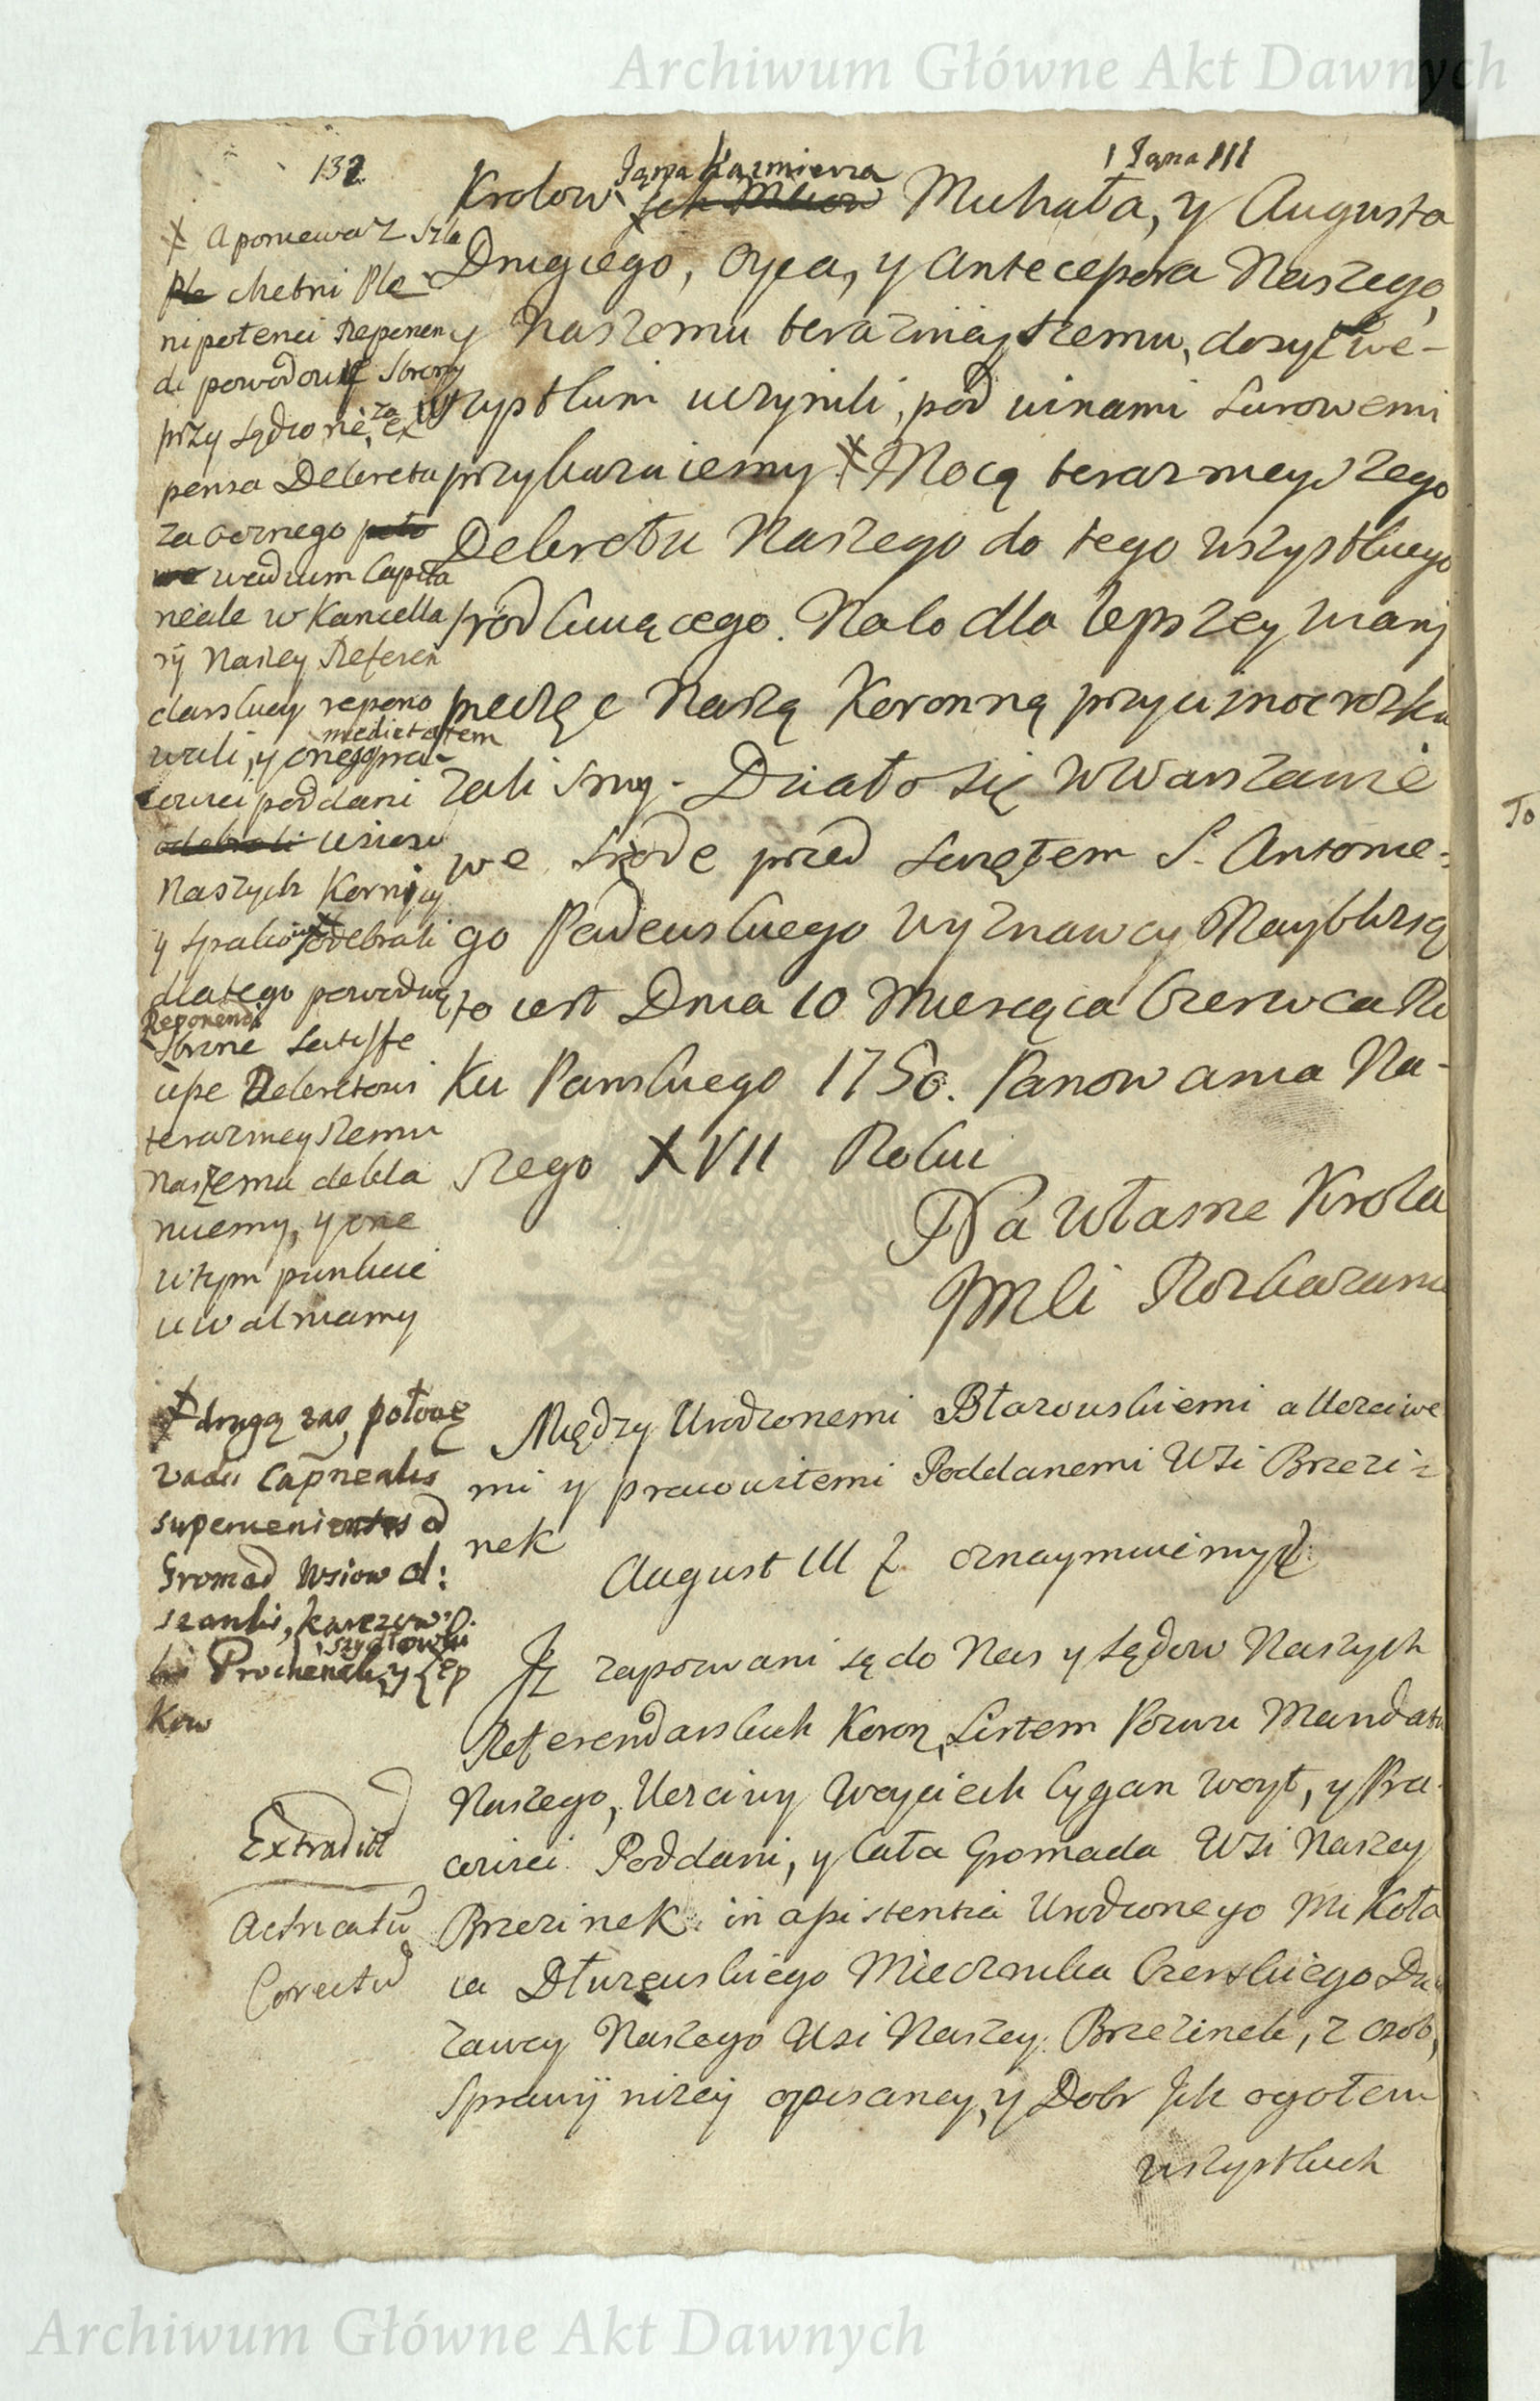 Archiwum Główne Akt Dawnych
132
Jana Kazmierza
i Jana III
Krolow Ich Mciow Michała, y Augusta
Drugiego, Oyca, y Antecessora Naszego,
y Naszemu teraznieyszemu, dosyć we
wszystkim uczynili, pod winami surowemi
przykazuiemy X Mocą teraznieyszego
Dekretu Naszego do tego wszystkiego
pociągaiącego. Na co dla lepszey wiary
pieczęć Naszą Koronną przycisnąc rozka
zali smy. Działo się w Warszawie
we Srodę przed Swiętem S. Antonie-
go Padewskiego Wyznawcy Naybliszą
to iest Dnia 10 Miesiąca Czerwca Ro
ku Panskiego 1750. Panowania Na-
szego XVII Roku
Na Własne Krola
JMci Rozkazanie
X a poniewaz Szla
Ple chetni Ple
nipotenci Reponen
di powodowey Strony
przy Sądzie, za ex
pensa Dekretu
zaocznego
we wadium Capita
neale w Kancella
ryi Naszey Referen
darskiey repono
wali, y onego pra-
medietatem
cowici poddani
odebrali Wsiow
Naszych Kornicy
y Spalow odebrali
dlatego powodwę
Reponendi
Stronę Satisfe
cisse Dekretowi
teraznieyszemu
Naszemu dekla
ruiemy, y onę
w tym punkcie
uwalniamy
X drugą zas połowę
vadii Capnealis
supervenientes od
Gromad Wsiow Ol:
szanki,
Szydłowki
y Łep
kow
Między Urodzonemi Błazowskiemi a Uczciwe
mi y pracowitemi Poddanemi Wsi Brzezi-
nek
August III oznaymuiemy
Iz zapozwani są do Nas y Sądow Naszych
Referendarskich Koron, Listem Pozwu Mandatu
Naszego, Uczciwy Woyciech Cygan Woyt, y Pra-
cowici Poddani, y Cała Gromada Wsi Naszey
Brzezinek in assistentia Urodzonego Mikoła
ia Dłuzewskiego Miecznika Czerskiego Dzier
zawcy Naszego Wsi Naszey Brzezinek, z osob,
Sprawy nizey opisaney, y Dobr Ich ogołem
wszystkich
Extradict
Acticatu
Correctu
To
Archiwum Główne Akt Dawnych